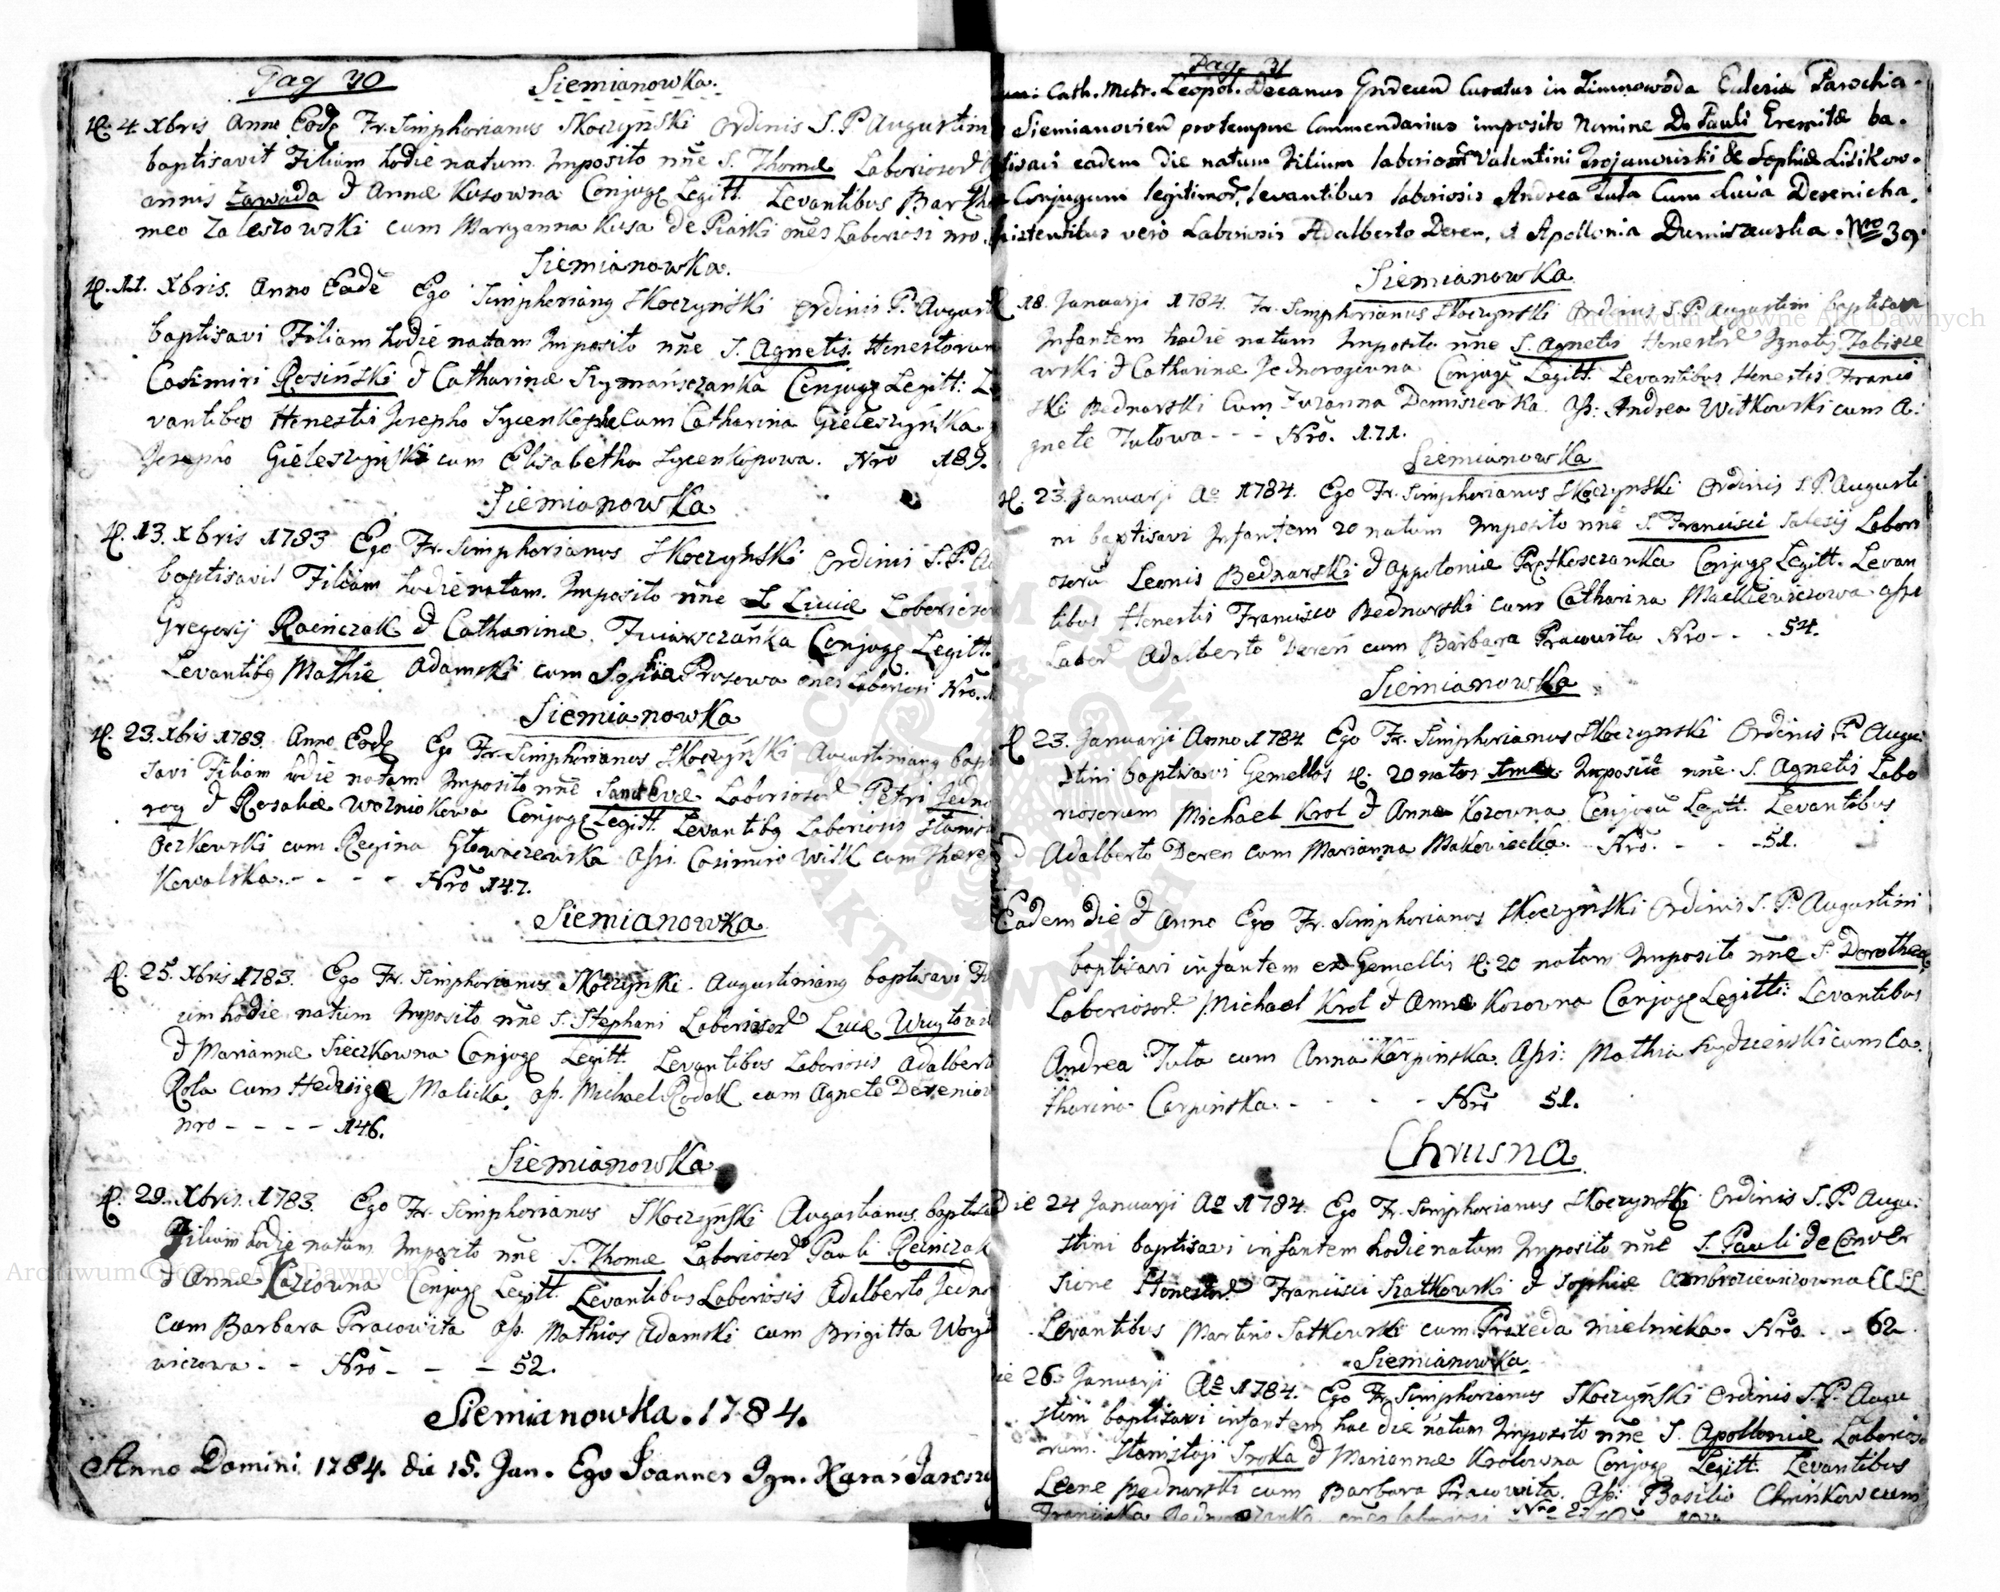 Pag 30 Siemianowka.
4. Xbris Anno Eode Fr. Simphorianus Skoczyński Ordinis S. P. Augustin
baptisavit Filium hodie natum Imposito nñe S. Thomæ Laboriosor
annis Zawada & Annæ Kusowna Conjuge Legitt. Levantibus Bartho
meo Zaleszowski cum Maryanna Kusa de Piaski oñes Laboriosi nro.
Siemianowka.
11. Xbris. Anno Eode Ego Simphorianq Skoczyński Ordinis P. August
baptisavi Filiam hodie natam Imposito nñe S. Agnetis. Honestorum
Casimiri Rosiński & Catharinæ Szymańszczanka Conjuge Legitt: Le
vantibus Honestis Josepho cum Catharina Gieleszyńska
Josepho Gieleszyński cum Elisabetha Sycenkopowa. Nro 189.
Siemianowka
13. Xbris 1783 Ego Fr. Simphorianus Skoczyński Ordinis S. P. Au
baptisavi Filiam hodie natam. Imposito nñe S. Luciæ Laborioso
Gregorij Raińczak & Catharinæ Conjuge Legitt.
Levantibq Mathia Adamski cum Sophia Prosowa oñes Laboriosi Nro.
Siemianowka
23. Xbris 1783. Anno Eode Ego Fr. Simphorianus Skoczyński Augustinianq bapti
savi Filiam hodie natam Imposito nñe Sanct Evæ Laboriosor Petri Jedno
rog & Rosaliæ Wozniakowa Conjuge Legitt. Levantibq Laboriosis Stanisla
Oczkowski cum Regina Głowaczewska assi. Casimiro Wilk cum There
Kowalska. - - - - Nro 147.
Siemianowka.
25. Xbris 1783. Ego Fr. Simphorianus Skoczyński. Augustinianq baptisavi Fi
um hodie natum Imposito nñe S. Stephani Laboriosor Lucæ
& Mariannæ Sieczkowna Conjuge Legitt. Levantibus Laboriosis Adalberto
Rola cum Hedwige Malicka. ass. Michael Rodak cum Agnete Dereniow
nro - - - - 146.
Siemianowka.
29. Xbris. 1783. Ego Fr. Simphorianus Skoczyński Augustianus baptisa
Filium hodie natum Imposito nñe S. Thomæ Laboriosor Pauli Reińczak
& Annæ Kozłowna Conjuge Legitt. Levantibus Laboriosis Adalberto Jedno
cum Barbara Pracowita ass. Mathias Adamski cum Brigitta Woyt
wiczowa - - Nro - - - 52.
Siemianowka. 1784.
Anno Domini 1784. die 15. Jan. Ego Joannes Ign. Karas
Pag. 31
Cath. Metr. Leopol. Decanus Grodecen Curatus in Zimnowoda Ecclesiæ Parochia-
Siemianovien pro tempore Commendarius imposito Nomine Di Pauli Eremitæ ba-
tisavi eadem die natum Filium laboriosor Valentini Trojanowski & Sophiæ Lisikow-
Conjugum legitimor, levantibus laboriosis Andrea Tuta Cum Lucia Derenicha,
sistentibus vero Laboriosis Adalberto Deren, et Apollonia Dumiszewska. Nro 39.
Siemianowka
18. Januarji 1784. Fr. Simphorianus Skoczynski Ordinis S. P. Augustini baptisavi
Infantem hodie natum Imposito nñe S. Agnetis Honestor Ignatij Tobisze
wski & Catharinæ Jednorogowna Conjuge Legitt. Levantibus Honestis Franci
ski Bednarski Cum Zuzanna Domiszewka. ass: Andrea Witkowski cum A-
gnete Tutowa - - - Nro. 171.
Siemianowka
23. Januarji Ao 1784. Ego Fr. Simphorianus Skoczynski Ordinis S. P. Augusti
ni baptisavi Infantem 20 natum Imposito nñe S. Francisci Salesij Labori
osoru Leonis Bednarski & Appoloniæ Conjuge Legitt. Levan
tibus Honestis Francisco Bednarski cum Catharina Mackiewiczowa assi
Labor Adalberto Dereń cum Barbara Pracowita Nro - - - 54.
Siemianowka
23. Januarji Anno 1784. Ego Fr. Simphorianus Skoczynski Ordinis S. P. Augu
stini baptisavi Gemellos 20 natos Imposito nñe S. Agnetis Labo
riosorum Michael Krol & Annæ Kozowna Conjugu Legitt. Levantibus
Adalberto Deren cum Marianna Makowiecka. - Nro. - - - 51.
Eadem die & Anno Ego Fr. Simphorianus Skoczyński Ordinis S. P. Augustini
baptisavi infantem ex Gemellis 20 natam Imposito nñe S. Dorotheæ
Laboriosor Michael Krol & Annæ Kozowna Conjuge Legitt: Levantibus
Andrea Tuta cum Anna Karpinska. Assi: Mathia cum Ca-
tharina Carpińska. - - - - Nro 51.
Chrusna
Die 24 Januarji Ao 1784. Ego Fr. Simphorianus Skoczynski Ordinis S. P. Augu-
stini baptisavi infantem hodie natum Imposito nñe S. Pauli de Conver
sione Honestor Francisci Szatkowski & Sophiæ Ambroziewiczowna CC LL
Levantibus Martino Satkowski cum Praxeda Mielnicka. Nro. - - 62
Siemianowka
die 26. Januarji Ao 1784. Ego Fr. Simphorianus Skoczyński Ordinis S. P. Augu
stini baptisavi infantem hac die natam Imposito nñe S. Apolloniæ Laborioso
rum. Stanislaji Sroka & Mariannæ Krolowna Conjuge Legitt. Levantibus
Leone Bednarski cum Barbara Pracowita. Ass: Basilio Chrińkow cum
Franciska oñes laboriosi Nro
Archiwum Główne Akt Dawnych
Archiwum Główne Akt Dawnych
ARCHIWUM GŁÓWNE AKT DAWNYCH